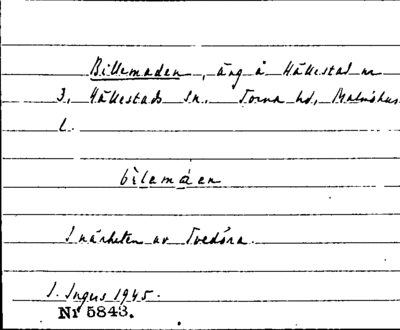 Billemaden, äng å Hällestad nr
3, Hällestads sn. Torna hd, Malmöhus
l.
bìlemá en
I närheten av Tvedöra.
I. Ingers 1945.
Nr 5843.